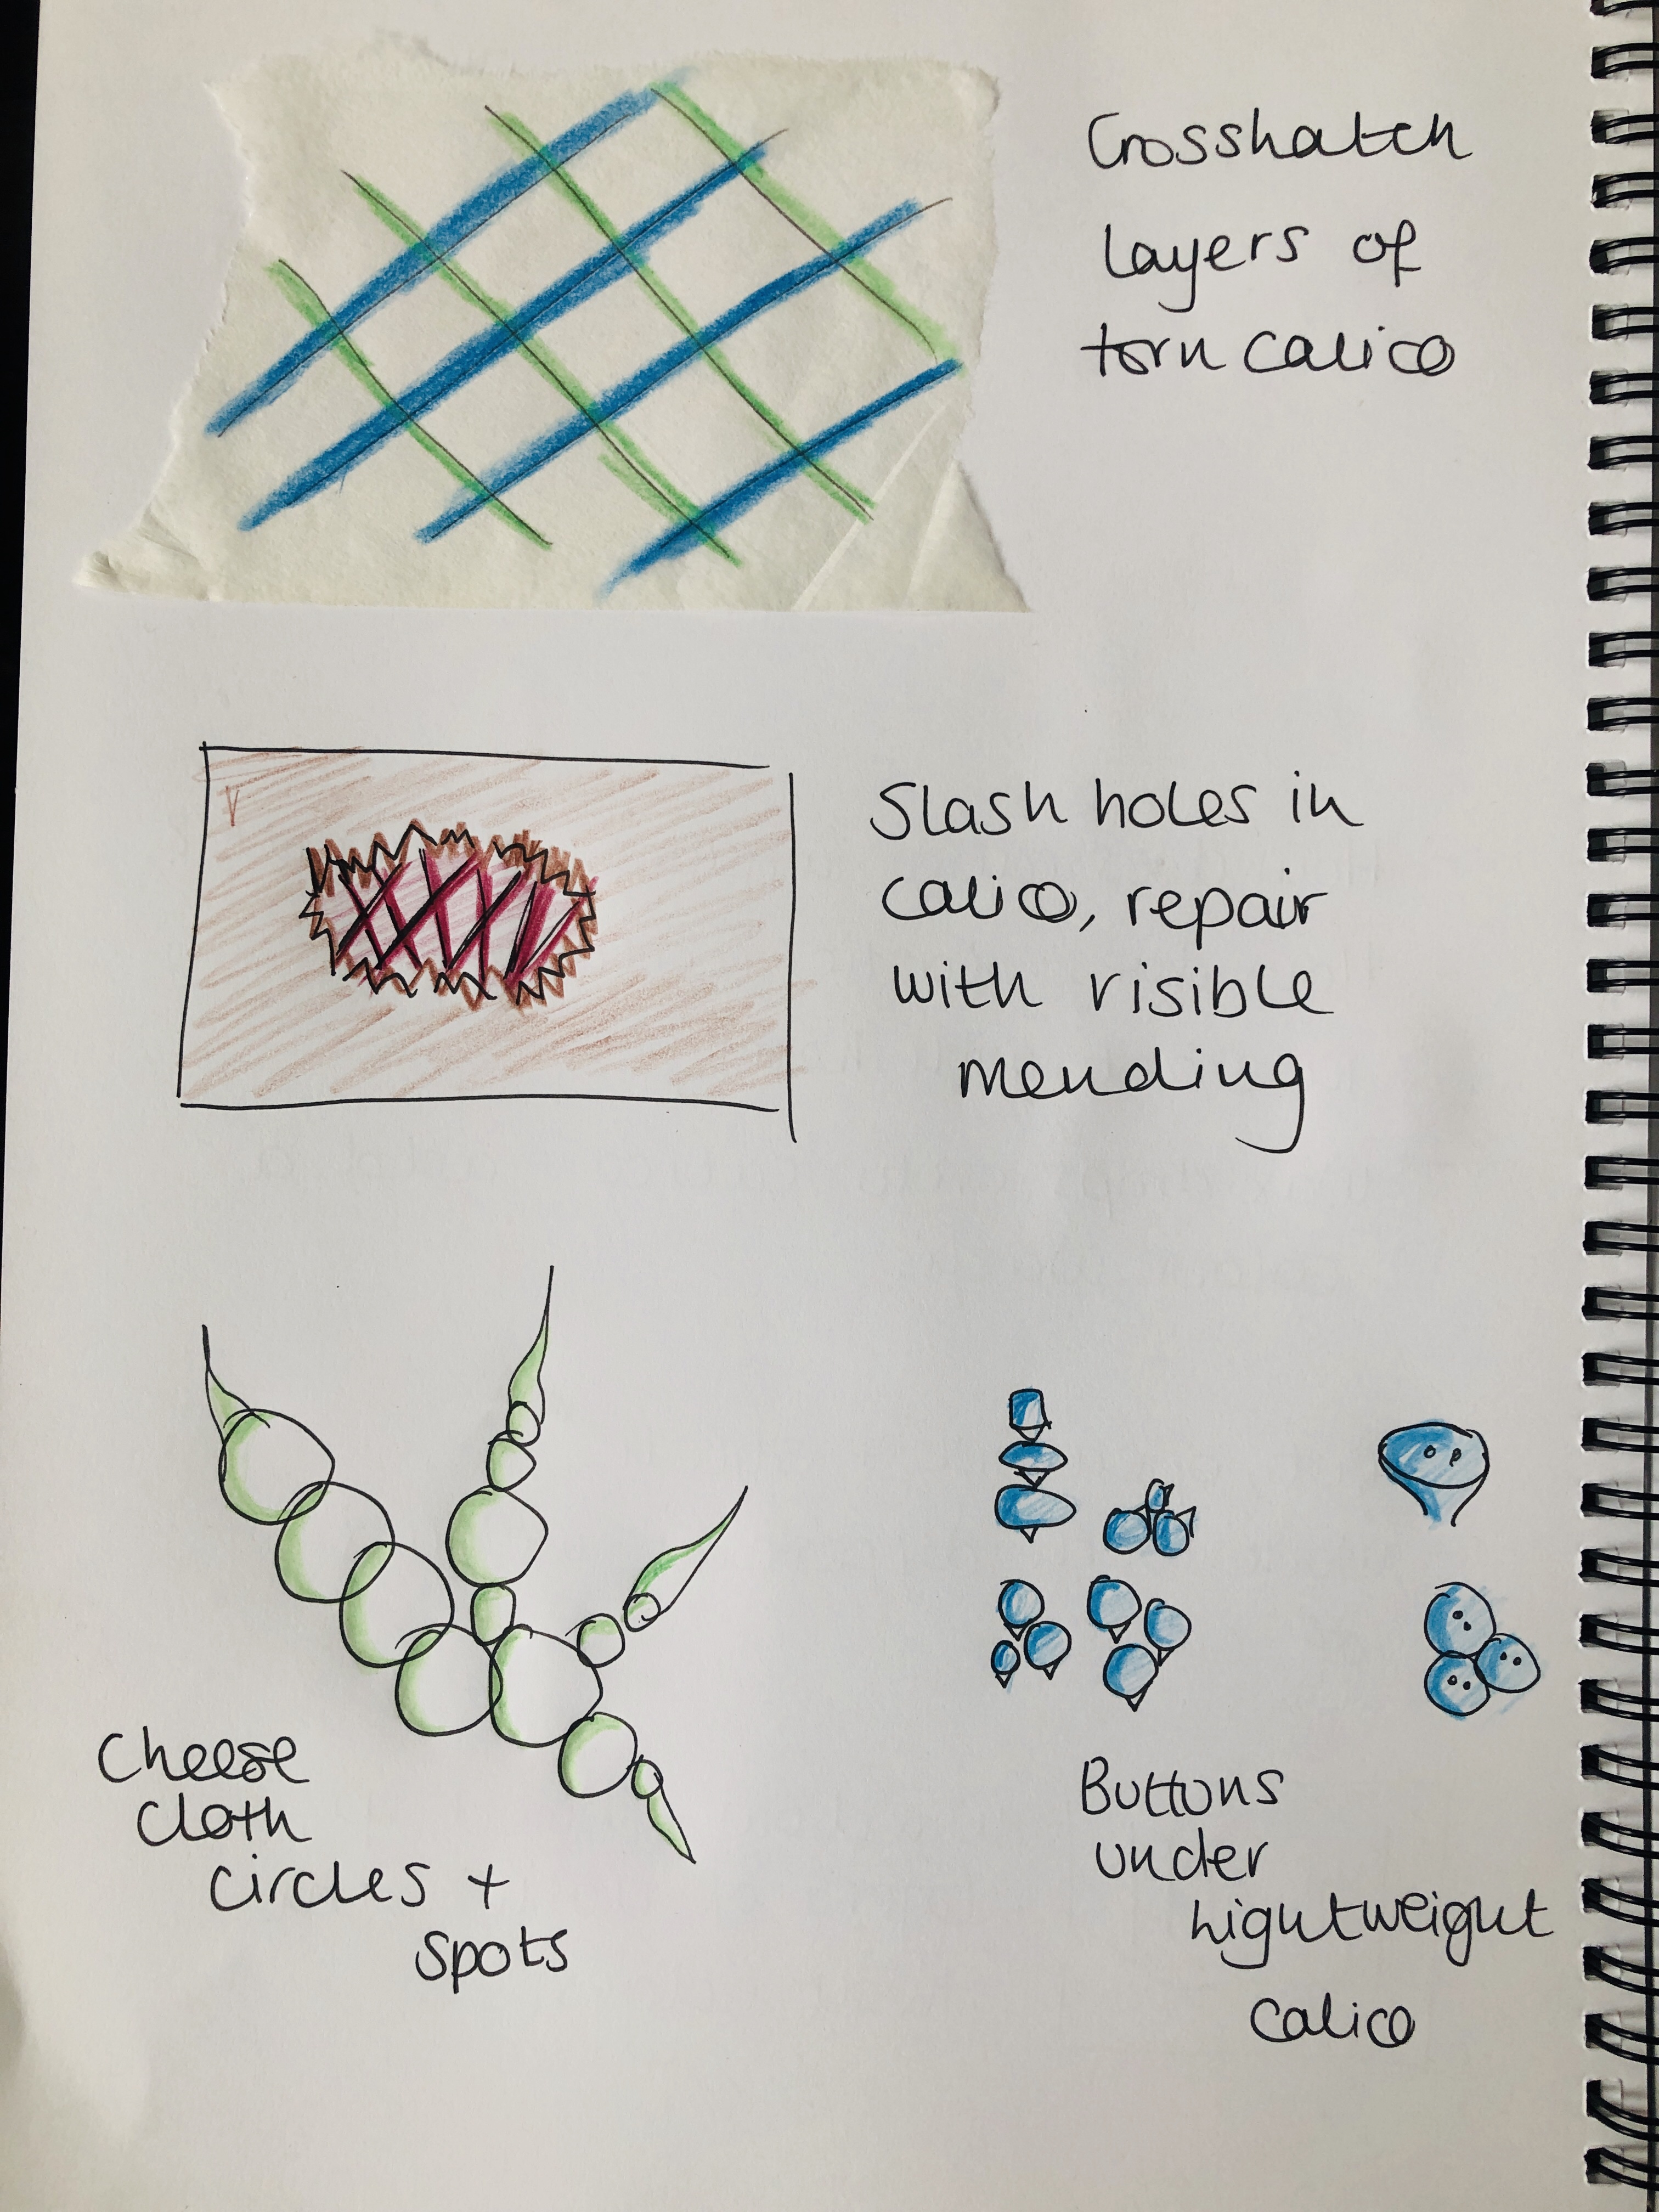 Crosshatch
layers of
torn calico
Slash holes in
calico, repair
with visible
mending
Cheese
cloth
circles +
spots
Buttons
under
lightweight
calico